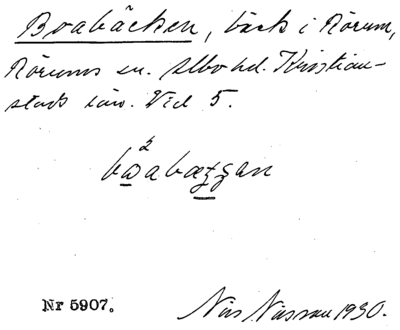 Boabäcken, bäck i Rörum,
Rörums sn. Albo hd. Kristian-
stads län. Vid 5.
Nr 5907. Nils Nilsson 1930.